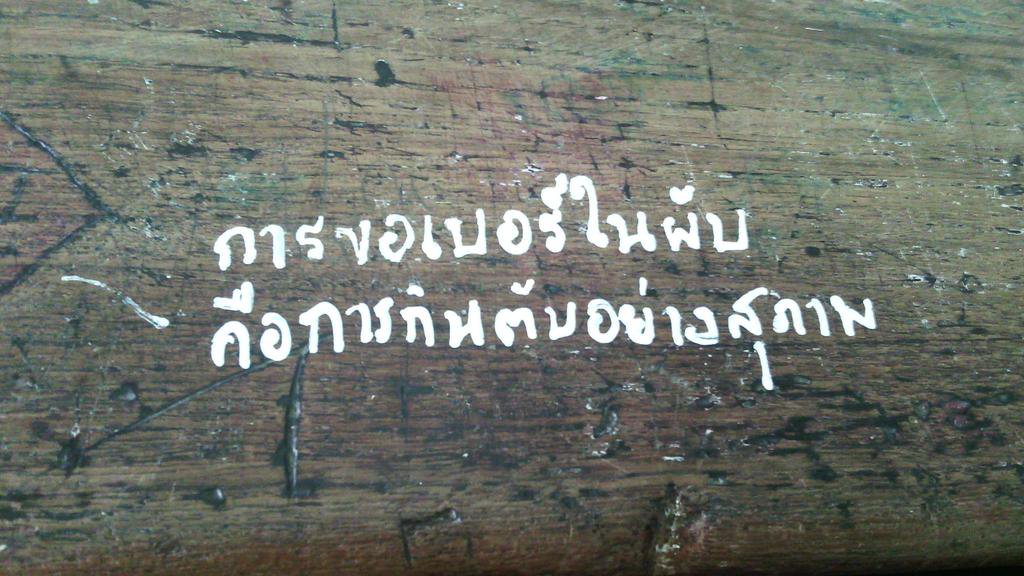 การขอเบอร์ในผับ
คือการกินตับอย่างสุภาพ